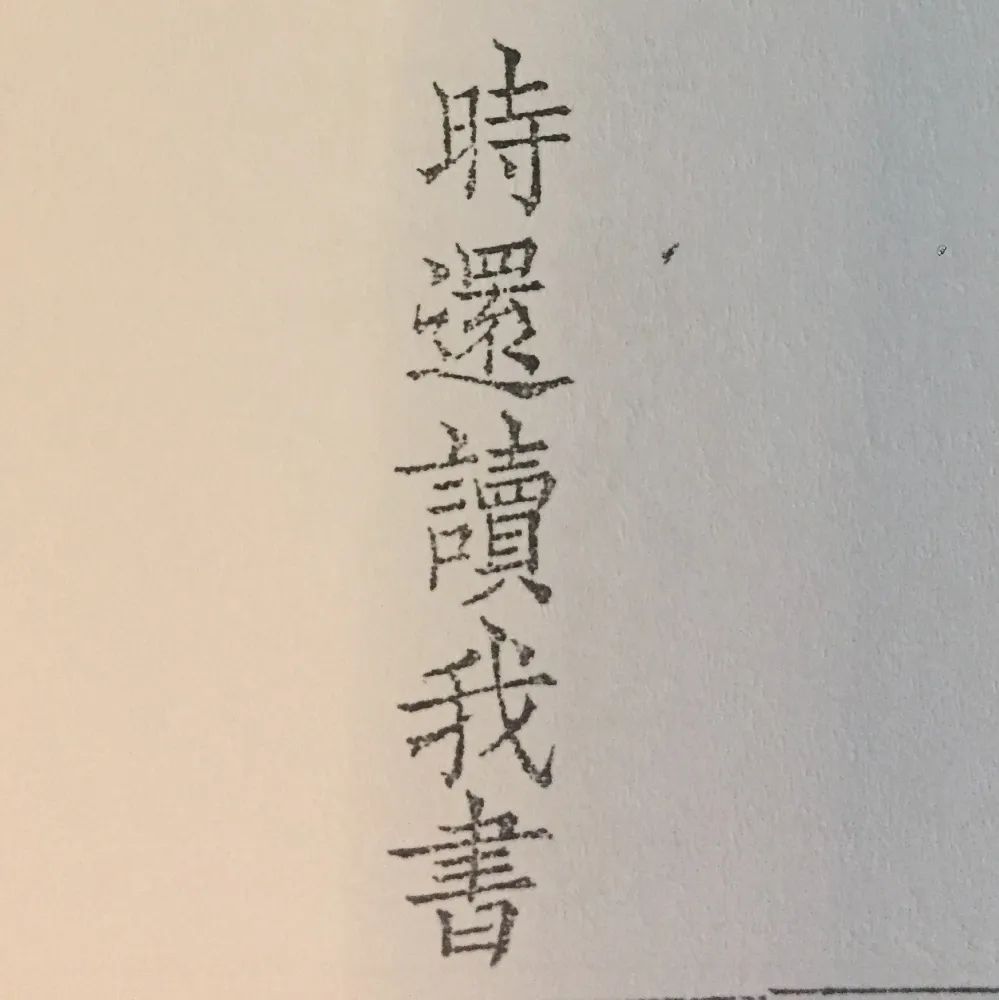 時還讀我書